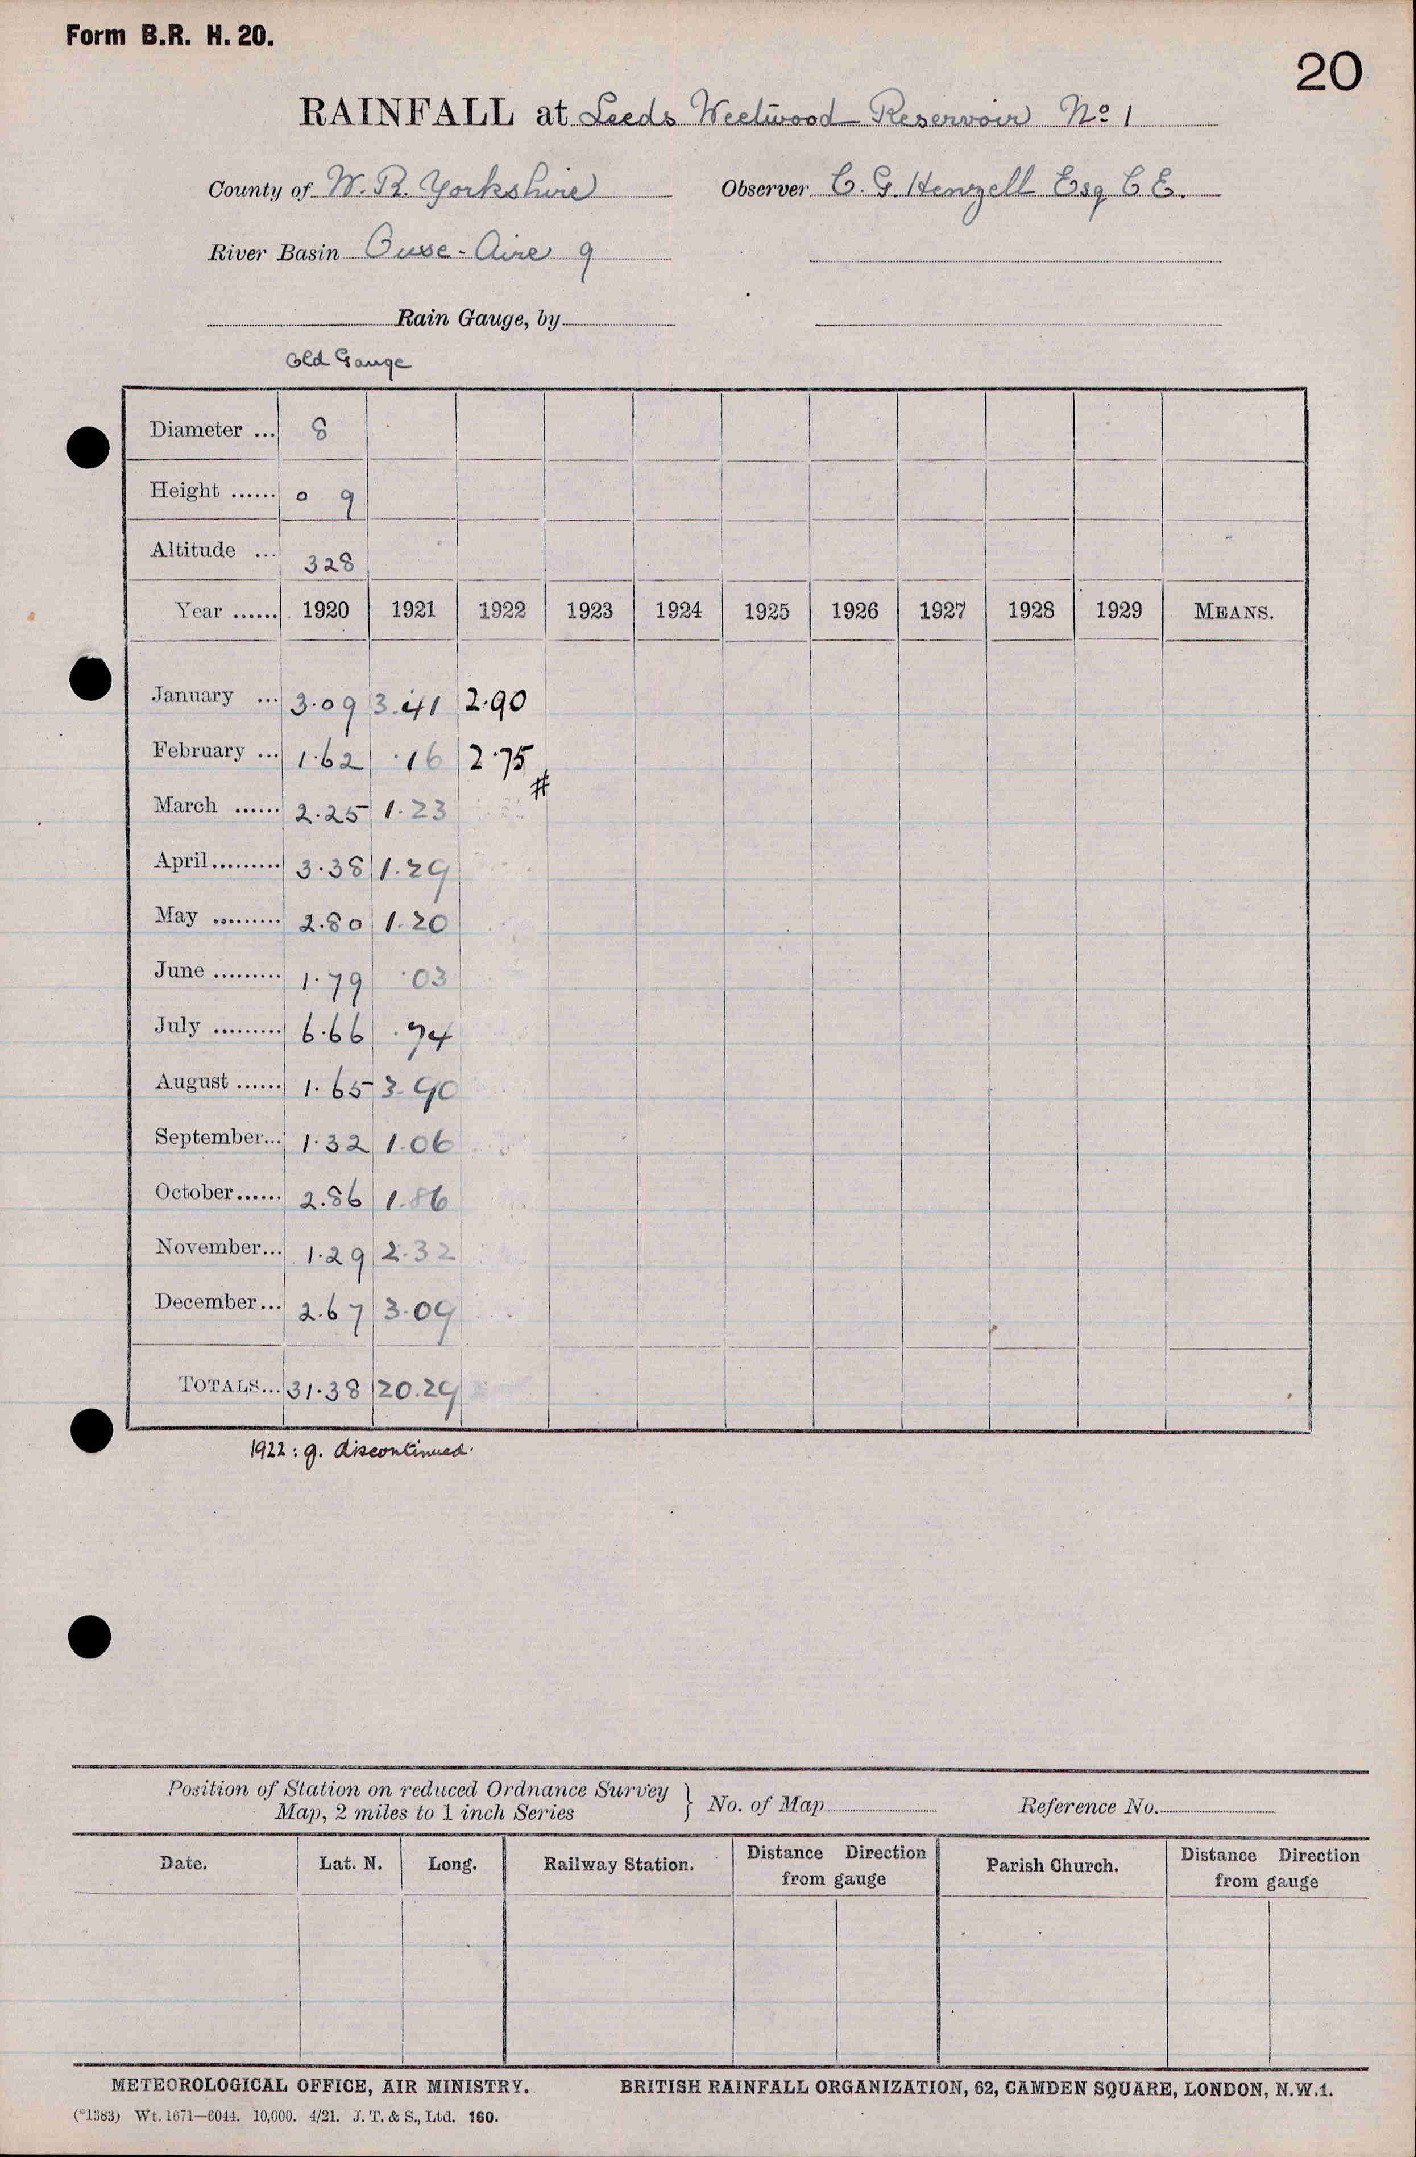 Form B.R. H. 20.
20
RAINFALL at Leeds Weetwood Reservoir No 1
County of W. R. Yorkshire Observer C. G. Henzell Esq C E.
River Basin Ouse - Aire 9
Rain Gauge, by
Old Gauge
Diameter ... 8
Height ...... 0 9
Altitude ... 328
Year ...... 1920 1921 1922 1923 1924 1925 1926 1927 1928 1929 MEANS.
January ... 3.09 3.41 2.90
February ... 1.62 .16 2.75
#
March ...... 2.25 1.23
April......... 3.38 1.29
May ......... 2.80 1.20
June ......... 1.79 .03
July ......... 6.66 .74
August ...... 1.65 3.90
September... 1.32 1.06
October...... 2.86 1.86
November... 1.29 2.32
December... 2.67 3.09
TOTALS... 31.38 20.29
1922 : g. discontinued.
Position of Station on reduced Ordnance Survey
Map, 2 miles to 1 inch Series } No. of Map Reference No.
Date. Lat. N. Long. Railway Station. Distance Direction from gauge Parish Church. Distance Direction from gauge
METEOROLOGICAL OFFICE, AIR MINISTRY. BRITISH RAINFALL ORGANIZATION, 62, CAMDEN SQUARE, LONDON, N.W.1.
(*1383) Wt. 1671—6044. 10,000. 4/21. J. T. & S., Ltd. 160.